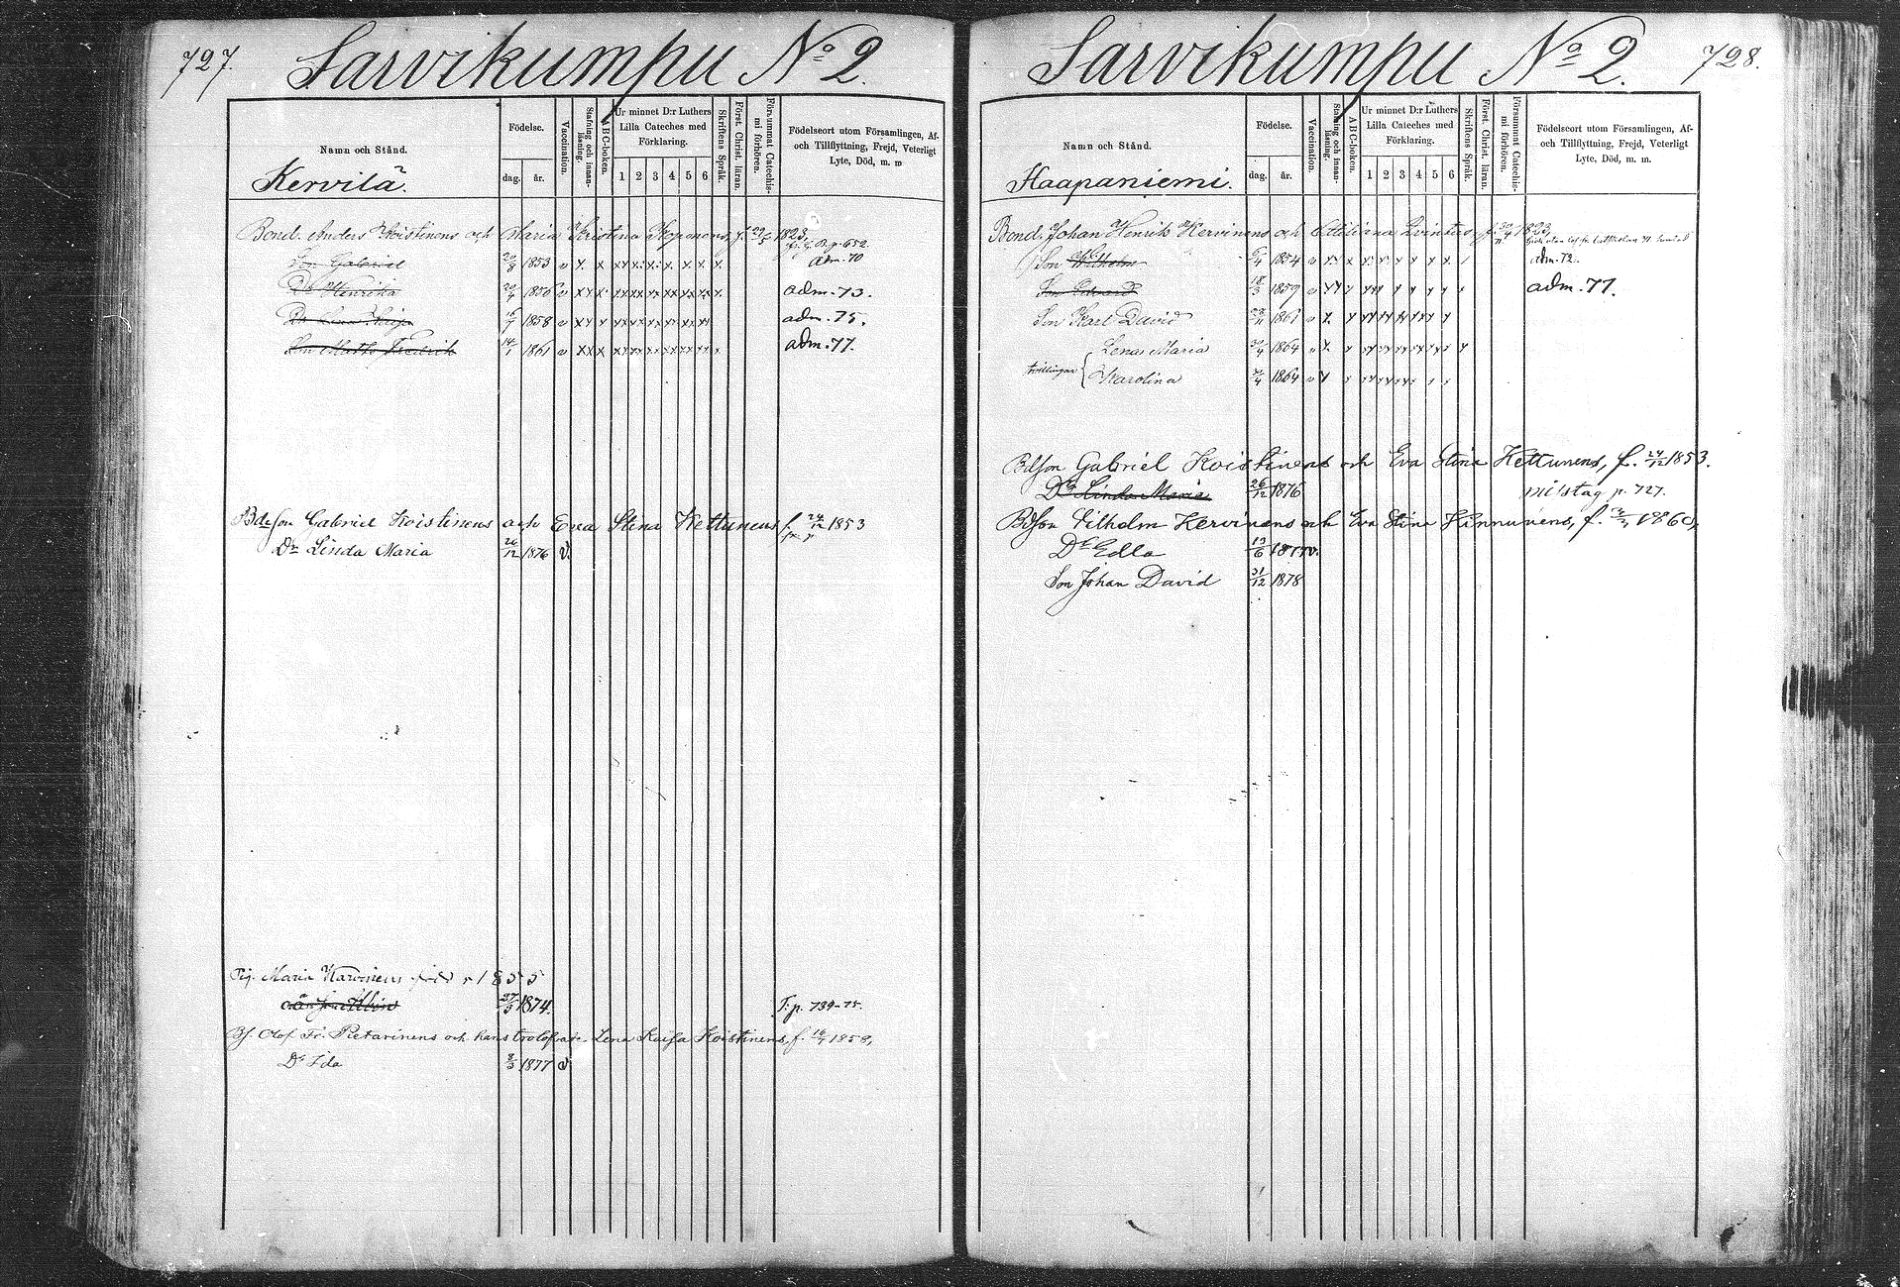 727.
Sarvikumpu No 2.
Namn och Stånd.
Födelse.
dag. år.
Vaccination.
Stafning och innanläsning.
ABC-boken.
Ur minnet D:r Luthers
Lilla Cateches med
Förklaring.
1 2 3 4 5 6
Skriftens Språk.
Först. Christ. läran.
Försummat Catechismi förhören.
Födelseort utom Församlingen, Af-
och Tillflyttning, Frejd, Veterligt
Lyte, Död, m. m
Kervilä.
Bond. Anders Koistinens och Maria Kristina 1823,
p. 652
Son Gabriel 20/8 1853 v x x adm. 70
Dr Henrika 1856 v adm. 73.
Dr Lena Kaisa 16/7 1858 v adm. 75.
Son Matts Fredrik 14/1 1861 v adm. 77.
Bdeson Gabriel Koistinens och Eva Stina Kettunens f. 24/12 1853
Dr Linda Maria 26/12 1876 v.
Pig. Maria 1855
27/3 1874. T. p. 739-75.
Bs. Olof Fr. Pietarinens och hans trolofvade Lena Kaisa Koistinens, f. 16/7 1858,
Dr Ida 8/3 1877 v
728.
Sarvikumpu No 2.
Namn och Stånd.
Födelse.
dag. år.
Vaccination.
Stafning och innanläsning.
ABC-boken.
Ur minnet D:r Luthers
Lilla Cateches med
Förklaring.
1 2 3 4 5 6
Skriftens Språk.
Först. Christ. läran.
Försummat Catechismi förhören.
Födelseort utom Församlingen, Af-
och Tillflyttning, Frejd, Veterligt
Lyte, Död, m. m.
Haapaniemi.
Bond. Johan Henrik Kervinens och 1823,
Son Wilhelm 1854 adm. 72.
Son Edvard 18/3 1859 adm. 77.
Son Karl David 1861
Lena Maria 1864
tvillingar { Karolina 1864
Bdson Gabriel Koistinens och Eva Stina Kettunens, f. 24/12 1853.
Dr Linda Maria 26/12 1876 misstag p. 727.
Bdson Vilhelm Kervinens och Eva Stina Kinnunens, f. 1860,
Dr Edla 13/6 1877 v.
Son Johan David 31/12 1878